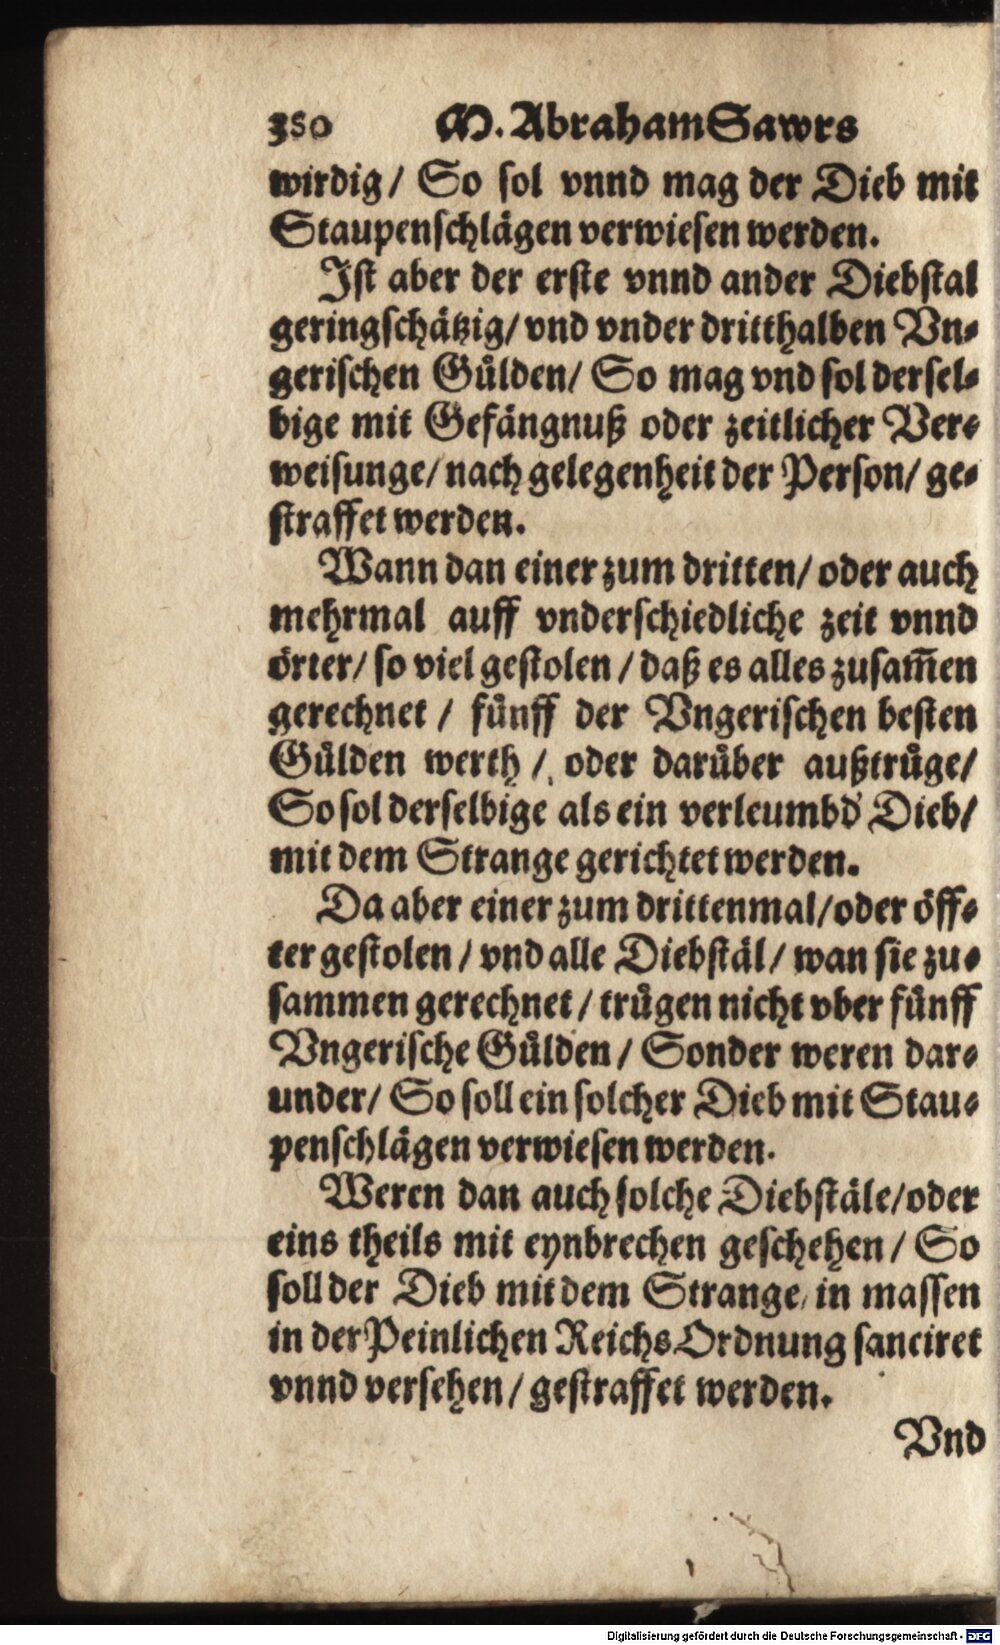 350 M. Abraham Sawrs
wirdig/ So sol vnnd mag der Dieb mit
Staupenschlägen verwiesen werden.
Ist aber der erste vnnd ander Diebstal
geringschätzig/ vnd vnder dritthalben Vn-
gerischen Gülden/ So mag vnd sol dersel-
bige mit Gefängnuß oder zeitlicher Ver-
weisunge/ nach gelegenheit der Person/ ge-
straffet werden.
Wann dan einer zum dritten/ oder auch
mehrmal auff vnderschiedliche zeit vnnd
örter/ so viel gestolen / daß es alles zusam̄en
gerechnet / fünff der Vngerischen besten
Gülden werth / oder darüber außtrüge/
So sol derselbige als ein verleumbd' Dieb/
mit dem Strange gerichtet werden.
Da aber einer zum drittenmal/ oder öff-
ter gestolen / vnd alle Diebstäl / wan sie zu-
sammen gerechnet / trügen nicht vber fünff
Vngerische Gülden / Sonder weren dar-
under/ So soll ein solcher Dieb mit Stau-
penschlägen verwiesen werden.
Weren dan auch solche Diebstäle/ oder
eins theils mit eynbrechen geschehen / So
soll der Dieb mit dem Strange, in massen
in der Peinlichen Reichs Ordnung sanciret
vnnd versehen / gestraffet werden.
Vnd
Digitalisierung gefördert durch die Deutsche Forschungsgemeinschaft - DFG